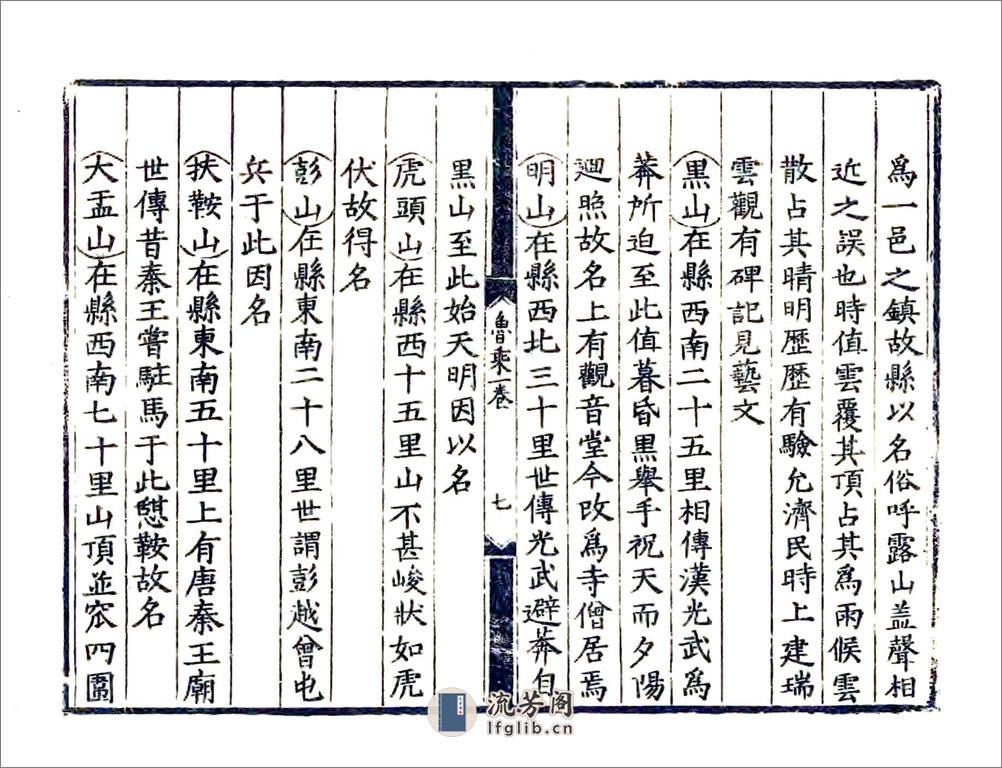 爲一邑之鎮故縣以名俗呼露山盖聲相
近之誤也時值雲覆其頂占其爲雨候雲
散占其晴明歷歷有驗允濟民時上建瑞
雲觀有碑記見藝文
黑山在縣西南二十五里相傳漢光武爲
莽所迫至此值暮昏黑舉手祝天而夕陽
迴照故名上有觀音堂今改爲寺僧居焉
明山在縣西北三十里世傳光武避莽自
魯乘一卷
七
黑山至此始天明因以名
虎頭山在縣西十五里山不甚峻狀如虎
伏故得名
彭山在縣東南二十八里世謂彭越曾屯
兵于此因名
扶鞍山在縣東南五十里上有唐秦王廟
世傳昔秦王嘗駐馬于此憇鞍故名
大盂山在縣西南七十里山頂並窊四圍
流芳阁
lfglib.cn